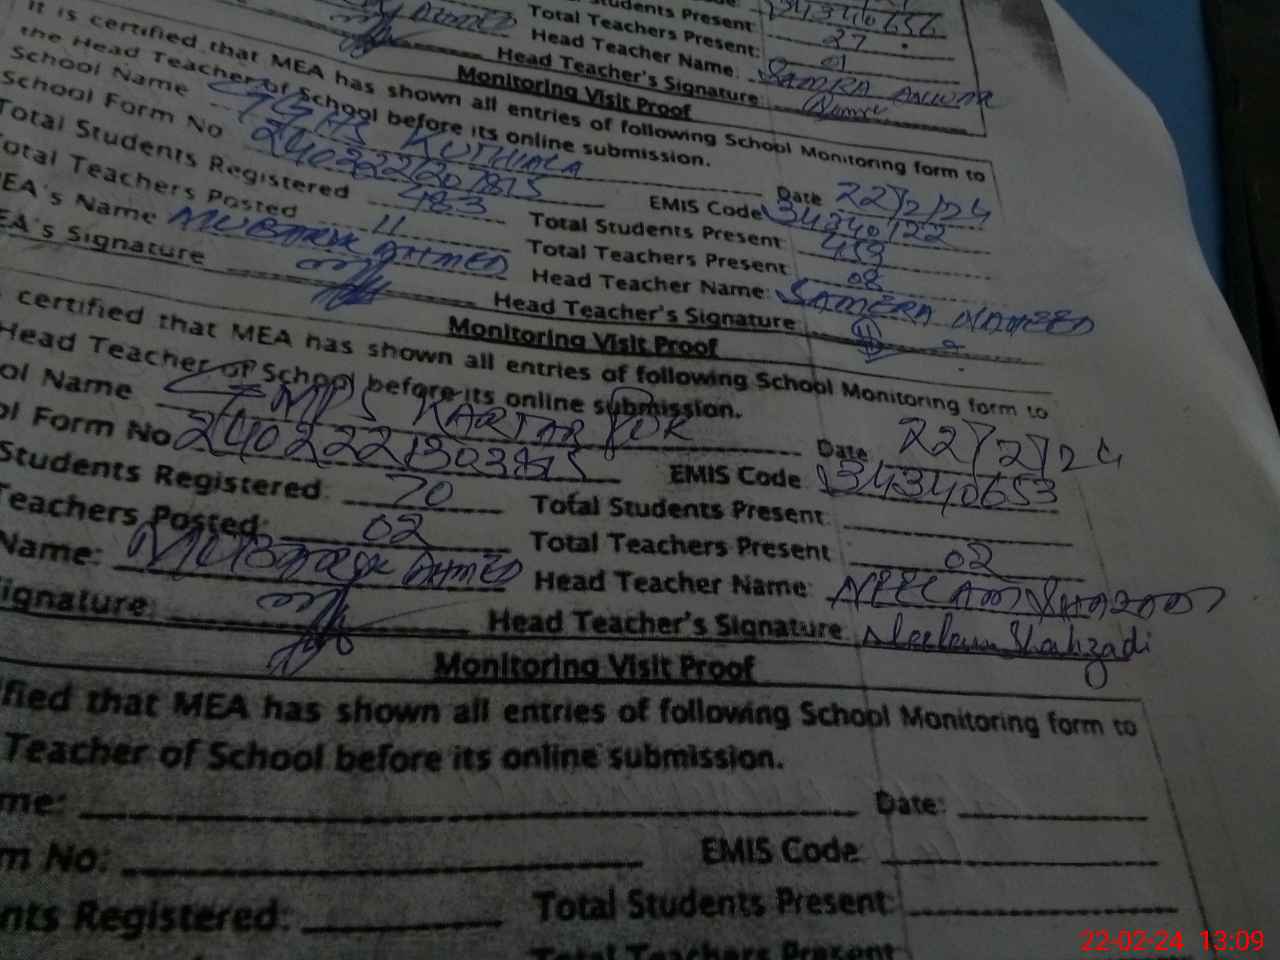 Students Present: 
Total Teachers Present: 27
Head Teacher Name: 01
Head Teacher's Signature SAMRA
Monitoring Visit Proof
It is certified that MEA has shown all entries of following School Monitoring form to
the Head Teacher of School before its online submission.
School Name KUTHIALA Date 22/2/24
School Form No EMIS Code 34340122
Total Students Registered 483 Total Students Present 459
Total Teachers Posted 11 Total Teachers Present 08
MEA's Name MUBARAK AHMED Head Teacher Name: SAMERA
MEA's Signature Head Teacher's Signature
Monitoring Visit Proof
certified that MEA has shown all entries of following School Monitoring form to
Head Teacher of School before its online submission.
ol Name GMPS KARTAR PUR Date 22/2/24
ol Form No EMIS Code 34340653
Students Registered: 70 Total Students Present:
Teachers Posted: 02 Total Teachers Present 02
Name: MUBARAK AHMED Head Teacher Name: NEELAM SHAHZADI
ignature: Head Teacher's Signature Neelam Shahzadi
Monitoring Visit Proof
fied that MEA has shown all entries of following School Monitoring form to
Teacher of School before its online submission.
me: Date:
m No: EMIS Code
nts Registered: Total Students Present:
Total Teachers Present
22-02-24 13:09